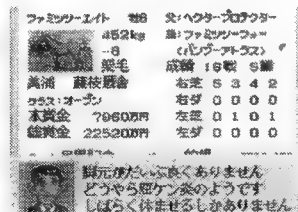 ファミツーエイト 牡6
父:ヘクタープロテクター
452kg
母:ファミツーフォー
-8
(バンブーアトラス)
栗毛
成績 16戦 5勝
美浦 蘇枝厩舎
右芝 5 3 4 2
クラス:オープン
右ダ 0 0 0 0
本賞金 7060万円
左芝 0 1 0 1
総賞金 22520万円
左ダ 0 0 0 0
脚元がだいぶ良くありません
どうやら屈ケン炎のようです
しばらく休ませるしかありません